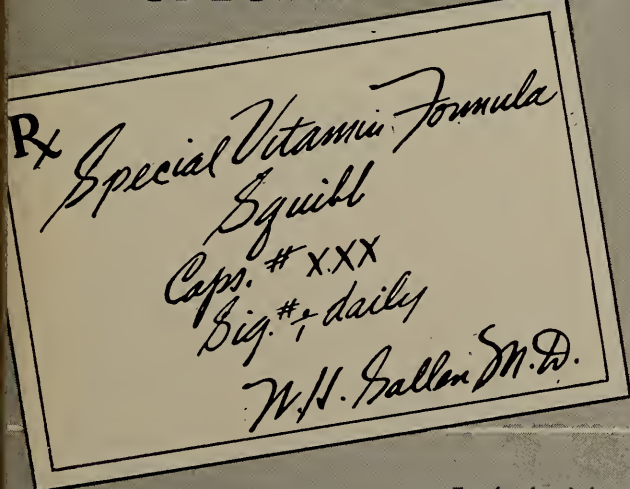 Rx Special Vitamin Formula
Squibb
Caps. # XXX
Sig. # daily
W.H. M.D.